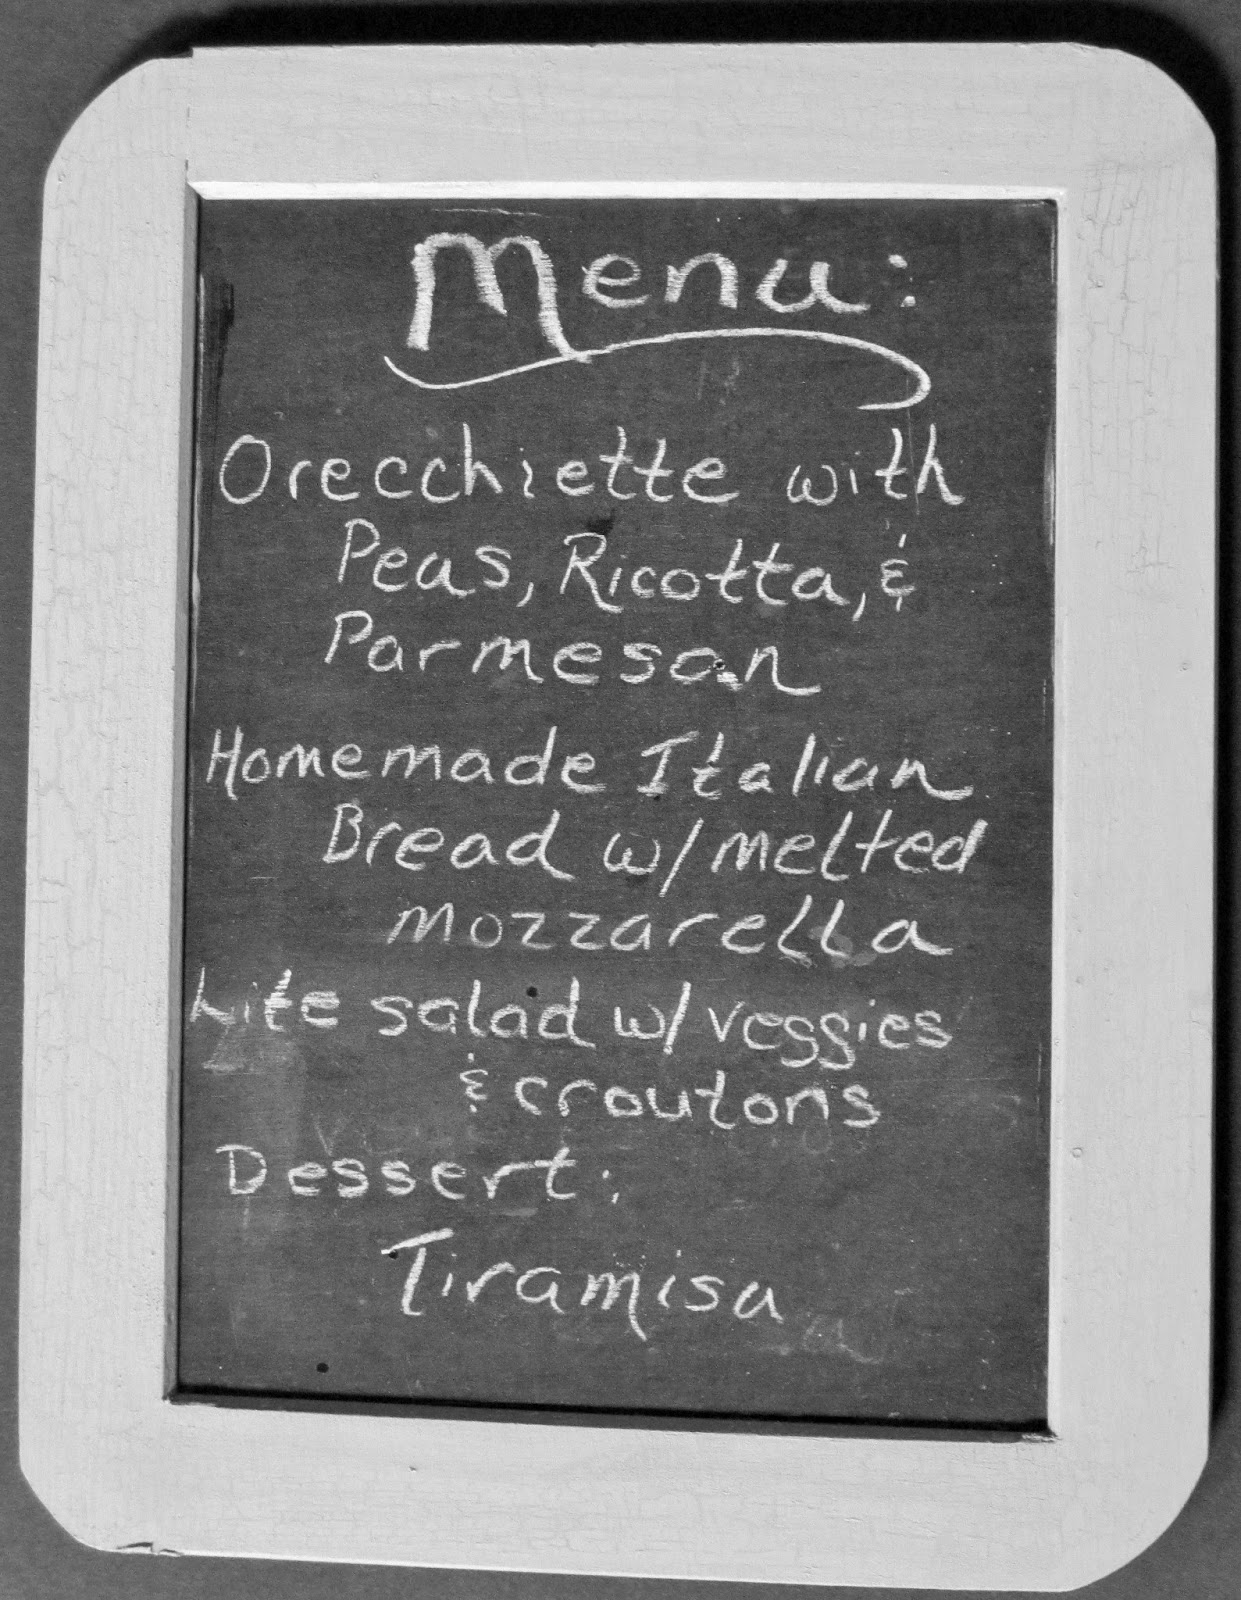 Menu:
Orecchiette with
Peas, Ricotta, &
Parmesan
Homemade Italian
Bread w/ melted
mozzarella
Lite salad w/ veggies
& croutons
Dessert:
Tiramisu